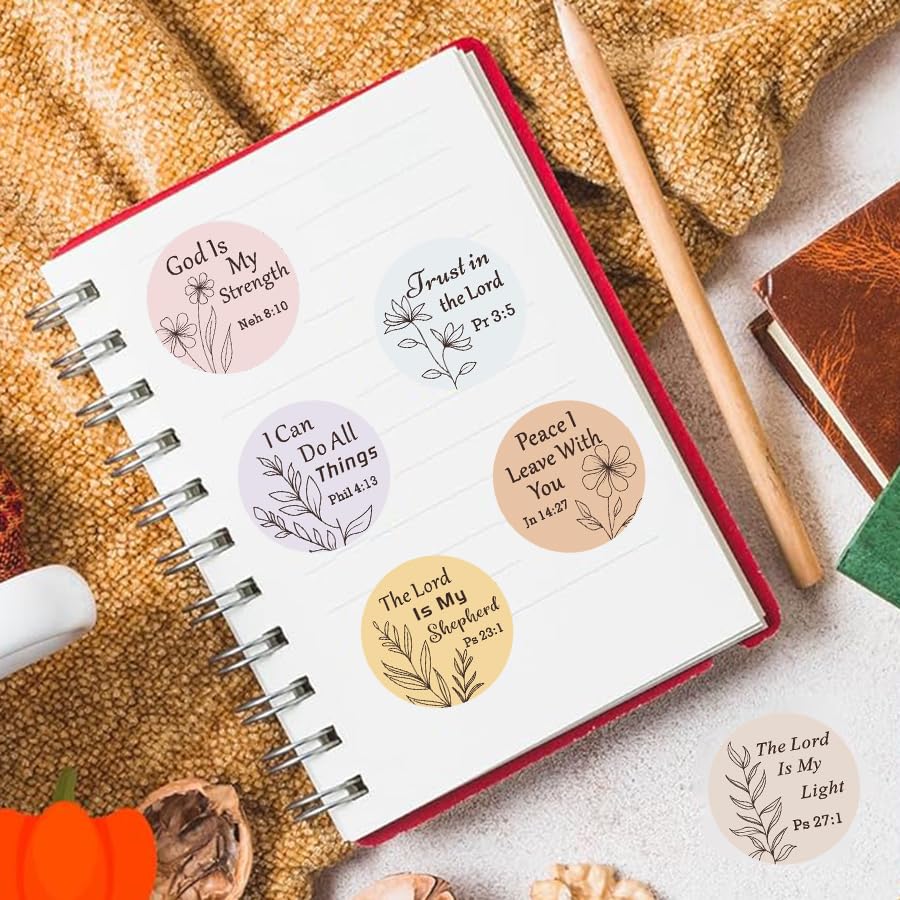 God Is
My
Strength
Neh 8:10
Trust in
the Lord
Pr 3:5
I Can
Do All
Things
Phil 4:13
Peace I
Leave With
You
Jn 14:27
The Lord
Is My
Shepherd
Ps 23:1
The Lord
Is My
Light
Ps 27:1